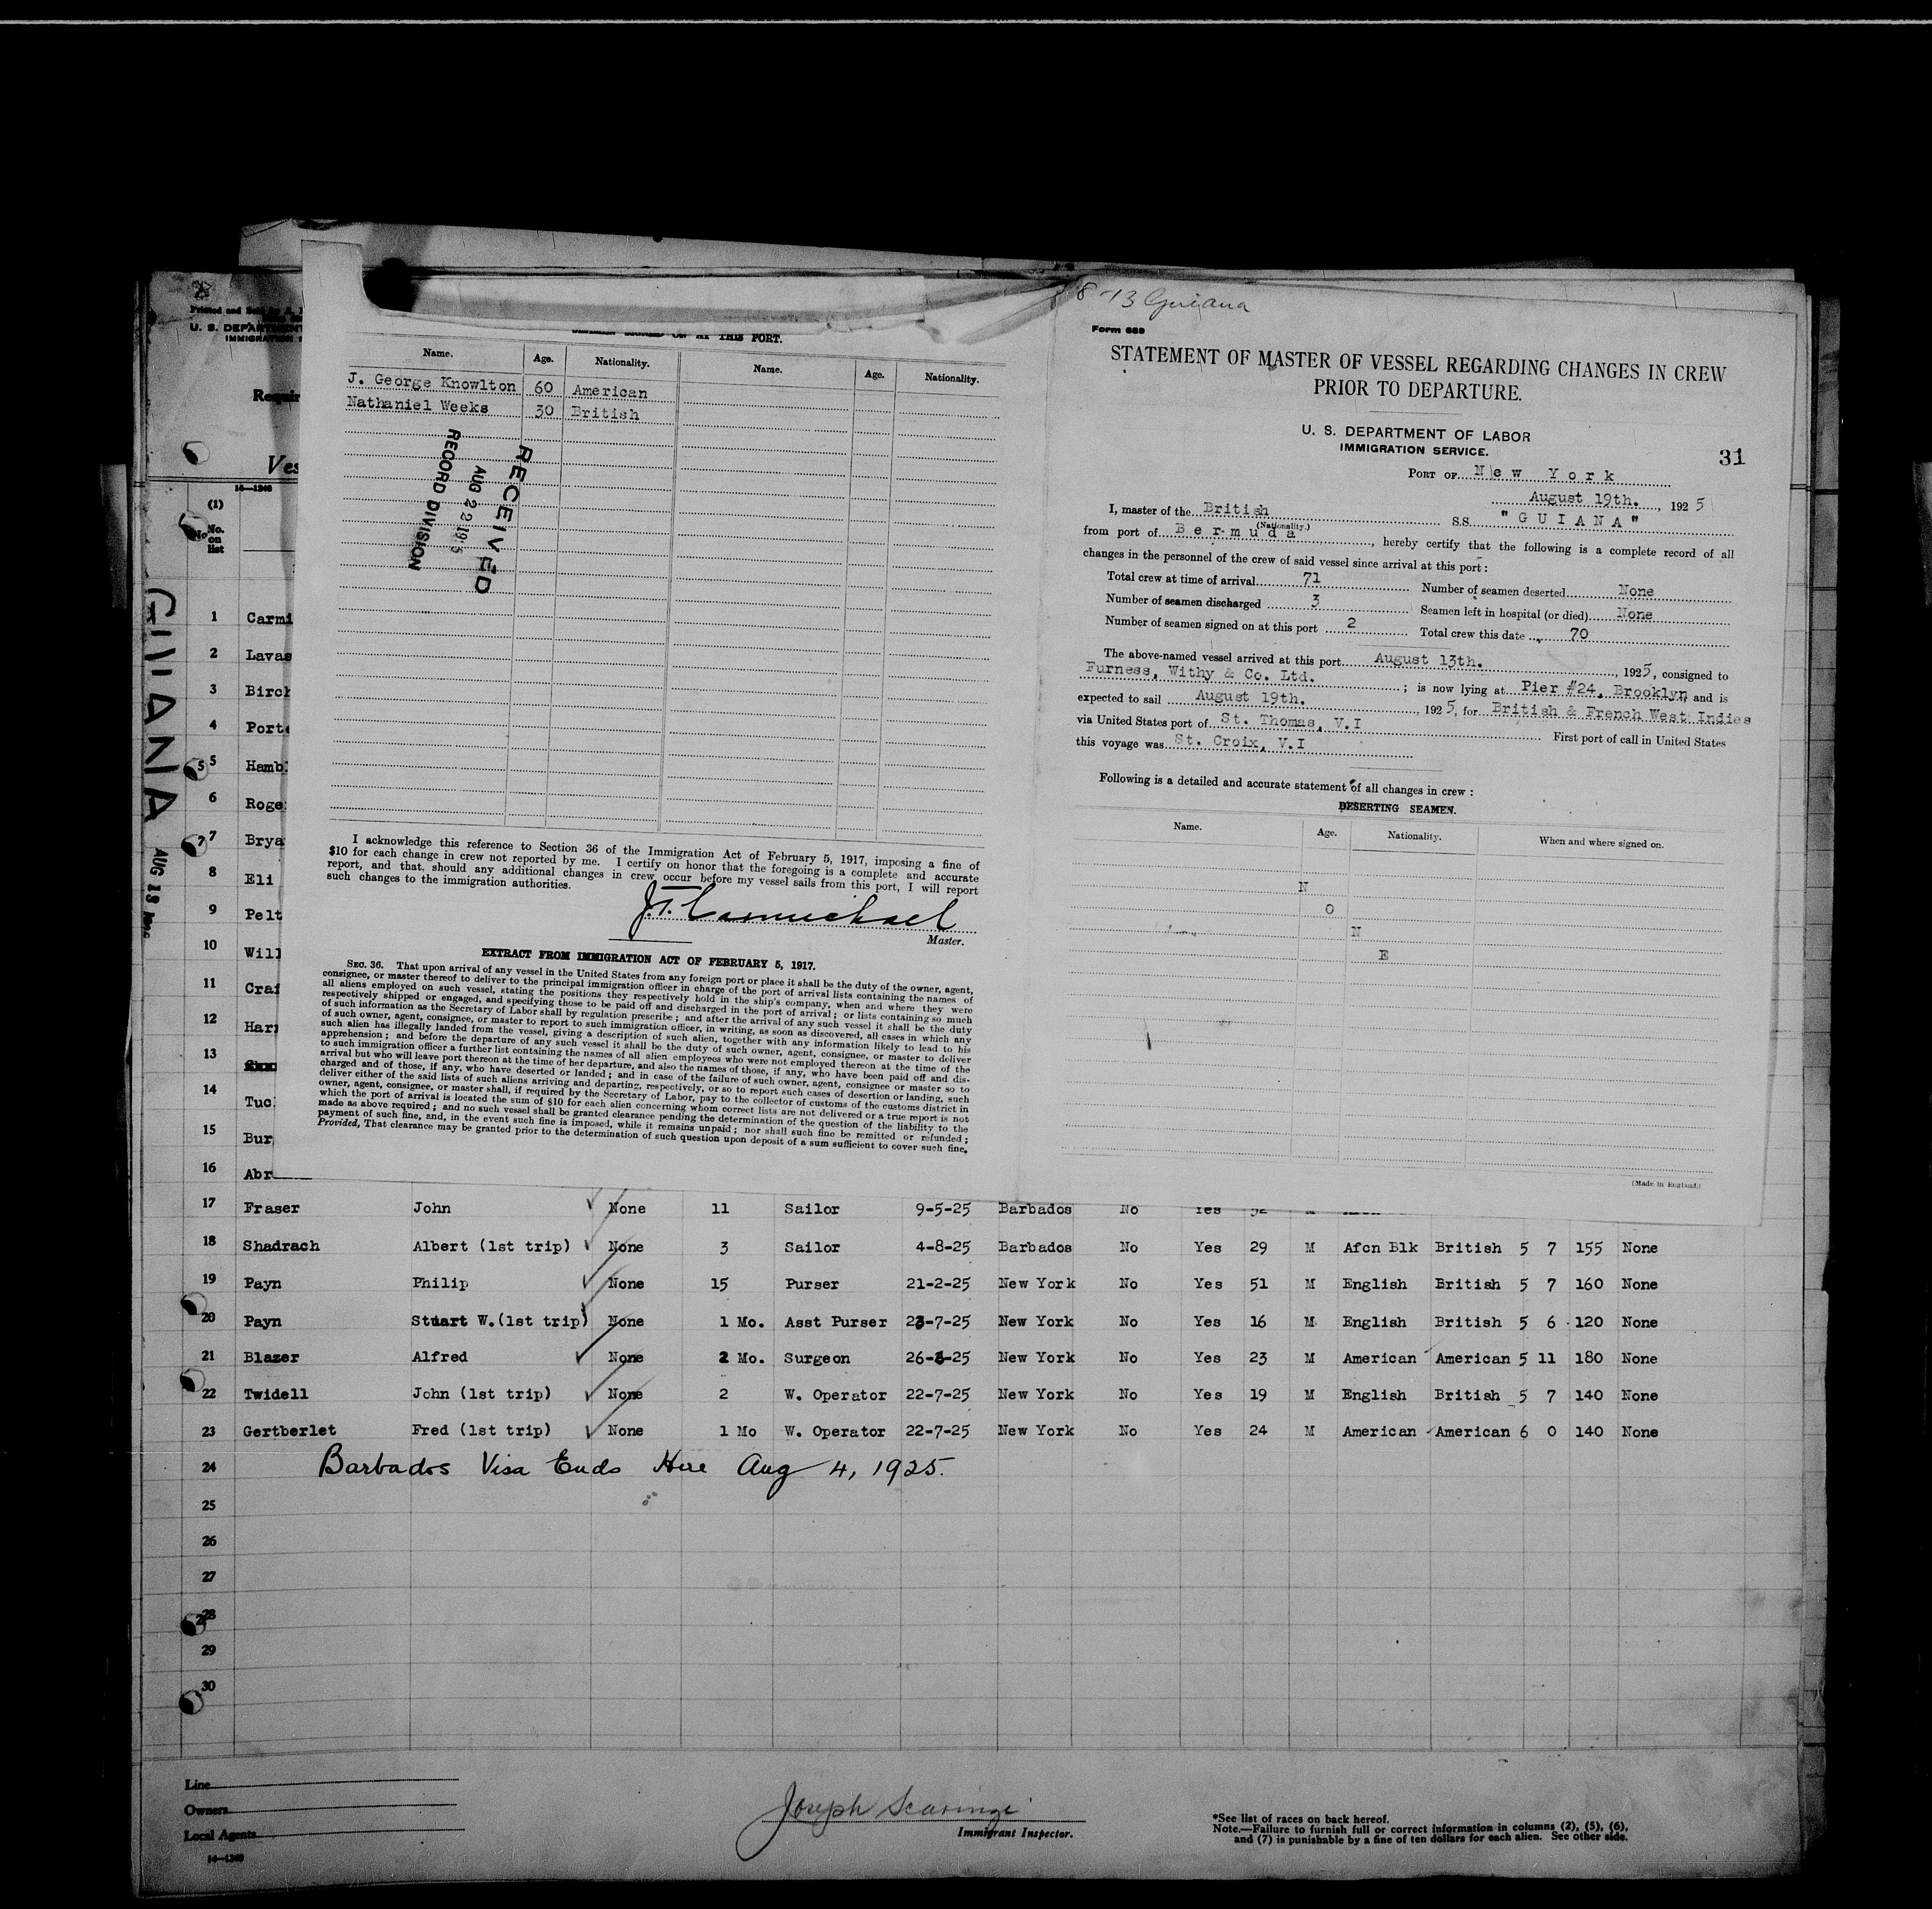 8-13 Guiana
Form 689
STATEMENT OF MASTER OF VESSEL REGARDING CHANGES IN CREW
PRIOR TO DEPARTURE.
U. S. DEPARTMENT OF LABOR
IMMIGRATION SERVICE.
31
PORT OF New York
August 19th., 1925
I, master of the British SS. "GUIANA"
(Nationality.)
from port of Bermuda, hereby certify that the following is a complete record of all
changes in the personnel of the crew of said vessel since arrival at this port:
Total crew at time of arrival 71 Number of seamen deserted None
Number of seamen discharged 3 Seamen left in hospital (or died) None
Number of seamen signed on at this port 2 Total crew this date 70
The above-named vessel arrived at this port August 13th., 1925, consigned to
Furness, Withy & Co. Ltd.; is now lying at Pier #24, Brooklyn and is
expected to sail August 19th., 1925, for British & French West Indies
via United States port of St. Thomas, V.I First port of call in United States
this voyage was St. Croix, V.I
Following is a detailed and accurate statement of all changes in crew:
DESERTING SEAMEN.
Name. Age. Nationality. When and where signed on.
N
O
N
E
(Made in England.)
AT THIS PORT.
Name. Age. Nationality. Name. Age. Nationality.
J. George Knowlton 60 American
Nathaniel Weeks 30 British
RECEIVED
AUG 22 1925
RECORD DIVISION
I acknowledge this reference to Section 36 of the Immigration Act of February 5, 1917, imposing a fine of
$10 for each change in crew not reported by me. I certify on honor that the foregoing is a complete and accurate
report, and that, should any additional changes in crew occur before my vessel sails from this port, I will report
such changes to the immigration authorities.
J. T. Carmichael
Master.
EXTRACT FROM IMMIGRATION ACT OF FEBRUARY 5, 1917.
SEC. 36. That upon arrival of any vessel in the United States from any foreign port or place it shall be the duty of the owner, agent,
consignee, or master thereof to deliver to the principal immigration officer in charge of the port of arrival lists containing the names of
all aliens employed on such vessel, stating the positions they respectively hold in the ship's company, when and where they were
respectively shipped or engaged, and specifying those to be paid off and discharged in the port of arrival; or lists containing so much
of such information as the Secretary of Labor shall by regulation prescribe; and after the arrival of any such vessel it shall be the duty
of such owner, agent, consignee, or master to report to such immigration officer, in writing, as soon as discovered, all cases in which any
such alien has illegally landed from the vessel, giving a description of such alien, together with any information likely to lead to his
apprehension; and before the departure of any such vessel it shall be the duty of such owner, agent, consignee, or master to deliver
to such immigration officer a further list containing the names of all alien employees who were not employed thereon at the time of the
arrival but who will leave port thereon at the time of her departure, and also the names of those, if any, who have been paid off and dis-
charged and of those, if any, who have deserted or landed; and in case of the failure of such owner, agent, consignee or master so to
deliver either of the said lists of such aliens arriving and departing, respectively, or so to report such cases of desertion or landing, such
owner, agent, consignee, or master shall, if required by the Secretary of Labor, pay to the collector of customs of the customs district in
which the port of arrival is located the sum of $10 for each alien concerning whom correct lists are not delivered or a true report is not
made as above required; and no such vessel shall be granted clearance pending the determination of the question of the liability to the
payment of such fine, and, in the event such fine is imposed, while it remains unpaid; nor shall such fine be remitted or refunded;
Provided, That clearance may be granted prior to the determination of such question upon deposit of a sum sufficient to cover such fine,
Printed and Sold by
U. S. DEPARTMENT
IMMIGRATION
Requir
Ves
14-1240
(1)
No.
on
list
GUIANA
AUG 13
1 Carmi
2 Lavas
3 Birch
4 Porte
5 Hamb
6 Roge
7 Brya
8 Eli
9 Pelt
10 Will
11 Craf
12 Harr
13
14 Tuc
15 Bur
16 Abr
17 Fraser John None 11 Sailor 9-5-25 Barbados No Yes 52
18 Shadrach Albert (1st trip) None 3 Sailor 4-8-25 Barbados No Yes 29 M Afcn Blk British 5 7 155 None
19 Payn Philip None 15 Purser 21-2-25 New York No Yes 51 M English British 5 7 160 None
20 Payn Stuart W.(1st trip) None 1 Mo. Asst Purser 23-7-25 New York No Yes 16 M English British 5 6 120 None
21 Blazer Alfred None 2 Mo. Surgeon 26- -25 New York No Yes 23 M American American 5 11 180 None
22 Twidell John (1st trip) None 2 W. Operator 22-7-25 New York No Yes 19 M English British 5 7 140 None
23 Gertberlet Fred (1st trip) None 1 Mo W. Operator 22-7-25 New York No Yes 24 M American American 6 0 140 None
24 Barbados Visa Ends Here Aug 4, 1925.
25
26
27
28
29
30
Line
Owners
Local Agents
14-1240
Joseph Scaringi
Immigrant Inspector.
*See list of races on back hereof.
Note.—Failure to furnish full or correct information in columns (2), (5), (6),
and (7) is punishable by a fine of ten dollars for each alien. See other side.